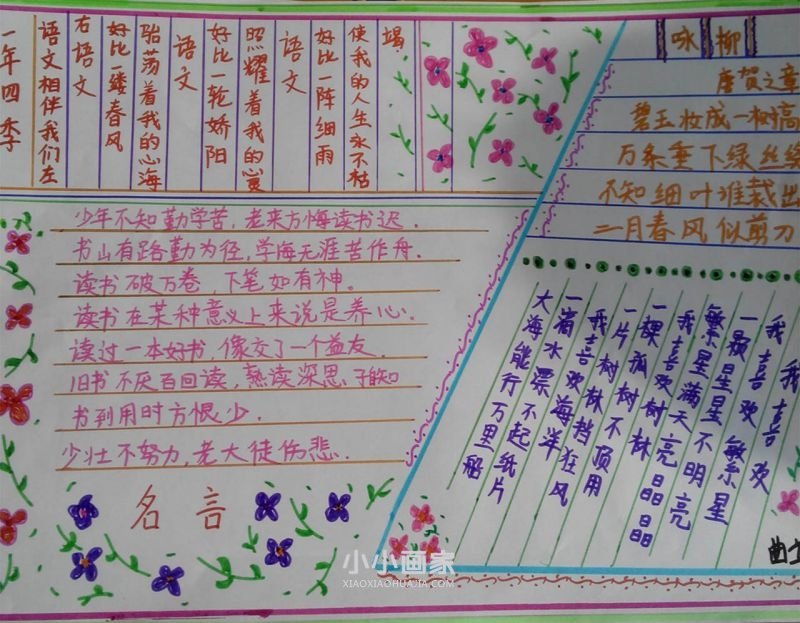 一年四季
语文相伴我们左
右语文
好比一缕春风
骀荡着我的心海
语文
好比一轮娇阳
照耀着我的心灵
语文
好比一阵细雨
使我的人生永不枯
竭
咏柳
唐贺之章
碧玉妆成一树高
万条垂下绿丝绦
不知细叶谁裁出
二月春风似剪刀
少年不知勤学苦，老来方悔读书迟．
书山有路勤为径，学海无涯苦作舟．
读书破万卷，下笔如有神。
读书在某种意义上来说是养心．
读过一本好书，像交了一个益友．
旧书不厌百回读，熟读深思子自知
书到用时方恨少．
少壮不努力，老大徒伤悲．
名言
我喜欢
我喜欢繁星
一颗星星不明亮
繁星满天亮晶晶
我喜欢树林
一棵孤树不顶用
一片树林挡狂风
我喜欢海洋
一滴水漂不起纸片
大海能行万里船
小小画家
XIAOXIAOHUAJIA.COM